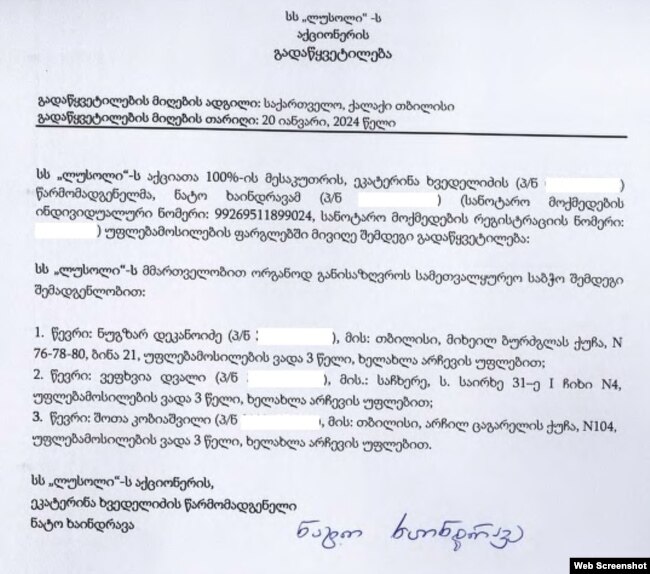 სს „ლუსოლი“ -ს
აქციონერის
გადაწყვეტილება
გადაწყვეტილების მიღების ადგილი: საქართველო, ქალაქი თბილისი
გადაწყვეტილების მიღების თარიღი: 20 იანვარი, 2024 წელი
სს „ლუსოლი“-ს აქციათა 100%-ის მესაკუთრის, ეკატერინა ხვედელიძის (პ/ნ )
წარმომადგენელმა, ნატო ხაინდრავამ (პ/ნ ) (სანოტარო მოქმედების
ინდივიდუალური ნომერი: 99269511899024, სანოტარო მოქმედების რეგისტრაციის ნომერი:
) უფლებამოსილების ფარგლებში მივიღე შემდეგი გადაწყვეტილება:
სს „ლუსოლი“-ს მმართველობით ორგანოდ განისაზღვროს სამეთვალყურეო საბჭო შემდეგი
შემადგენლობით:
1. წევრი: ნუგზარ დეკანოიძე (პ/ნ ), მის: თბილისი, მიხეილ ბურძგლას ქუჩა, N
76-78-80, ბინა 21, უფლებამოსილების ვადა 3 წელი, ხელახლა არჩევის უფლებით;
2. წევრი: ვეფხვია დვალი (პ/ნ ), მის.: საჩხერე, ს. საირხე 31-ე I ჩიხი N4,
უფლებამოსილების ვადა 3 წელი, ხელახლა არჩევის უფლებით;
3. წევრი: შოთა კობიაშვილი (პ/ნ ), მის: თბილისი, არჩილ ცაგარელის ქუჩა, N104,
უფლებამოსილების ვადა 3 წელი, ხელახლა არჩევის უფლებით.
სს „ლუსოლი“-ს აქციონერის,
ეკატერინა ხვედელიძის წარმომადგენელი
ნატო ხაინდრავა
ნატო ხაინდრავა
Web Screenshot